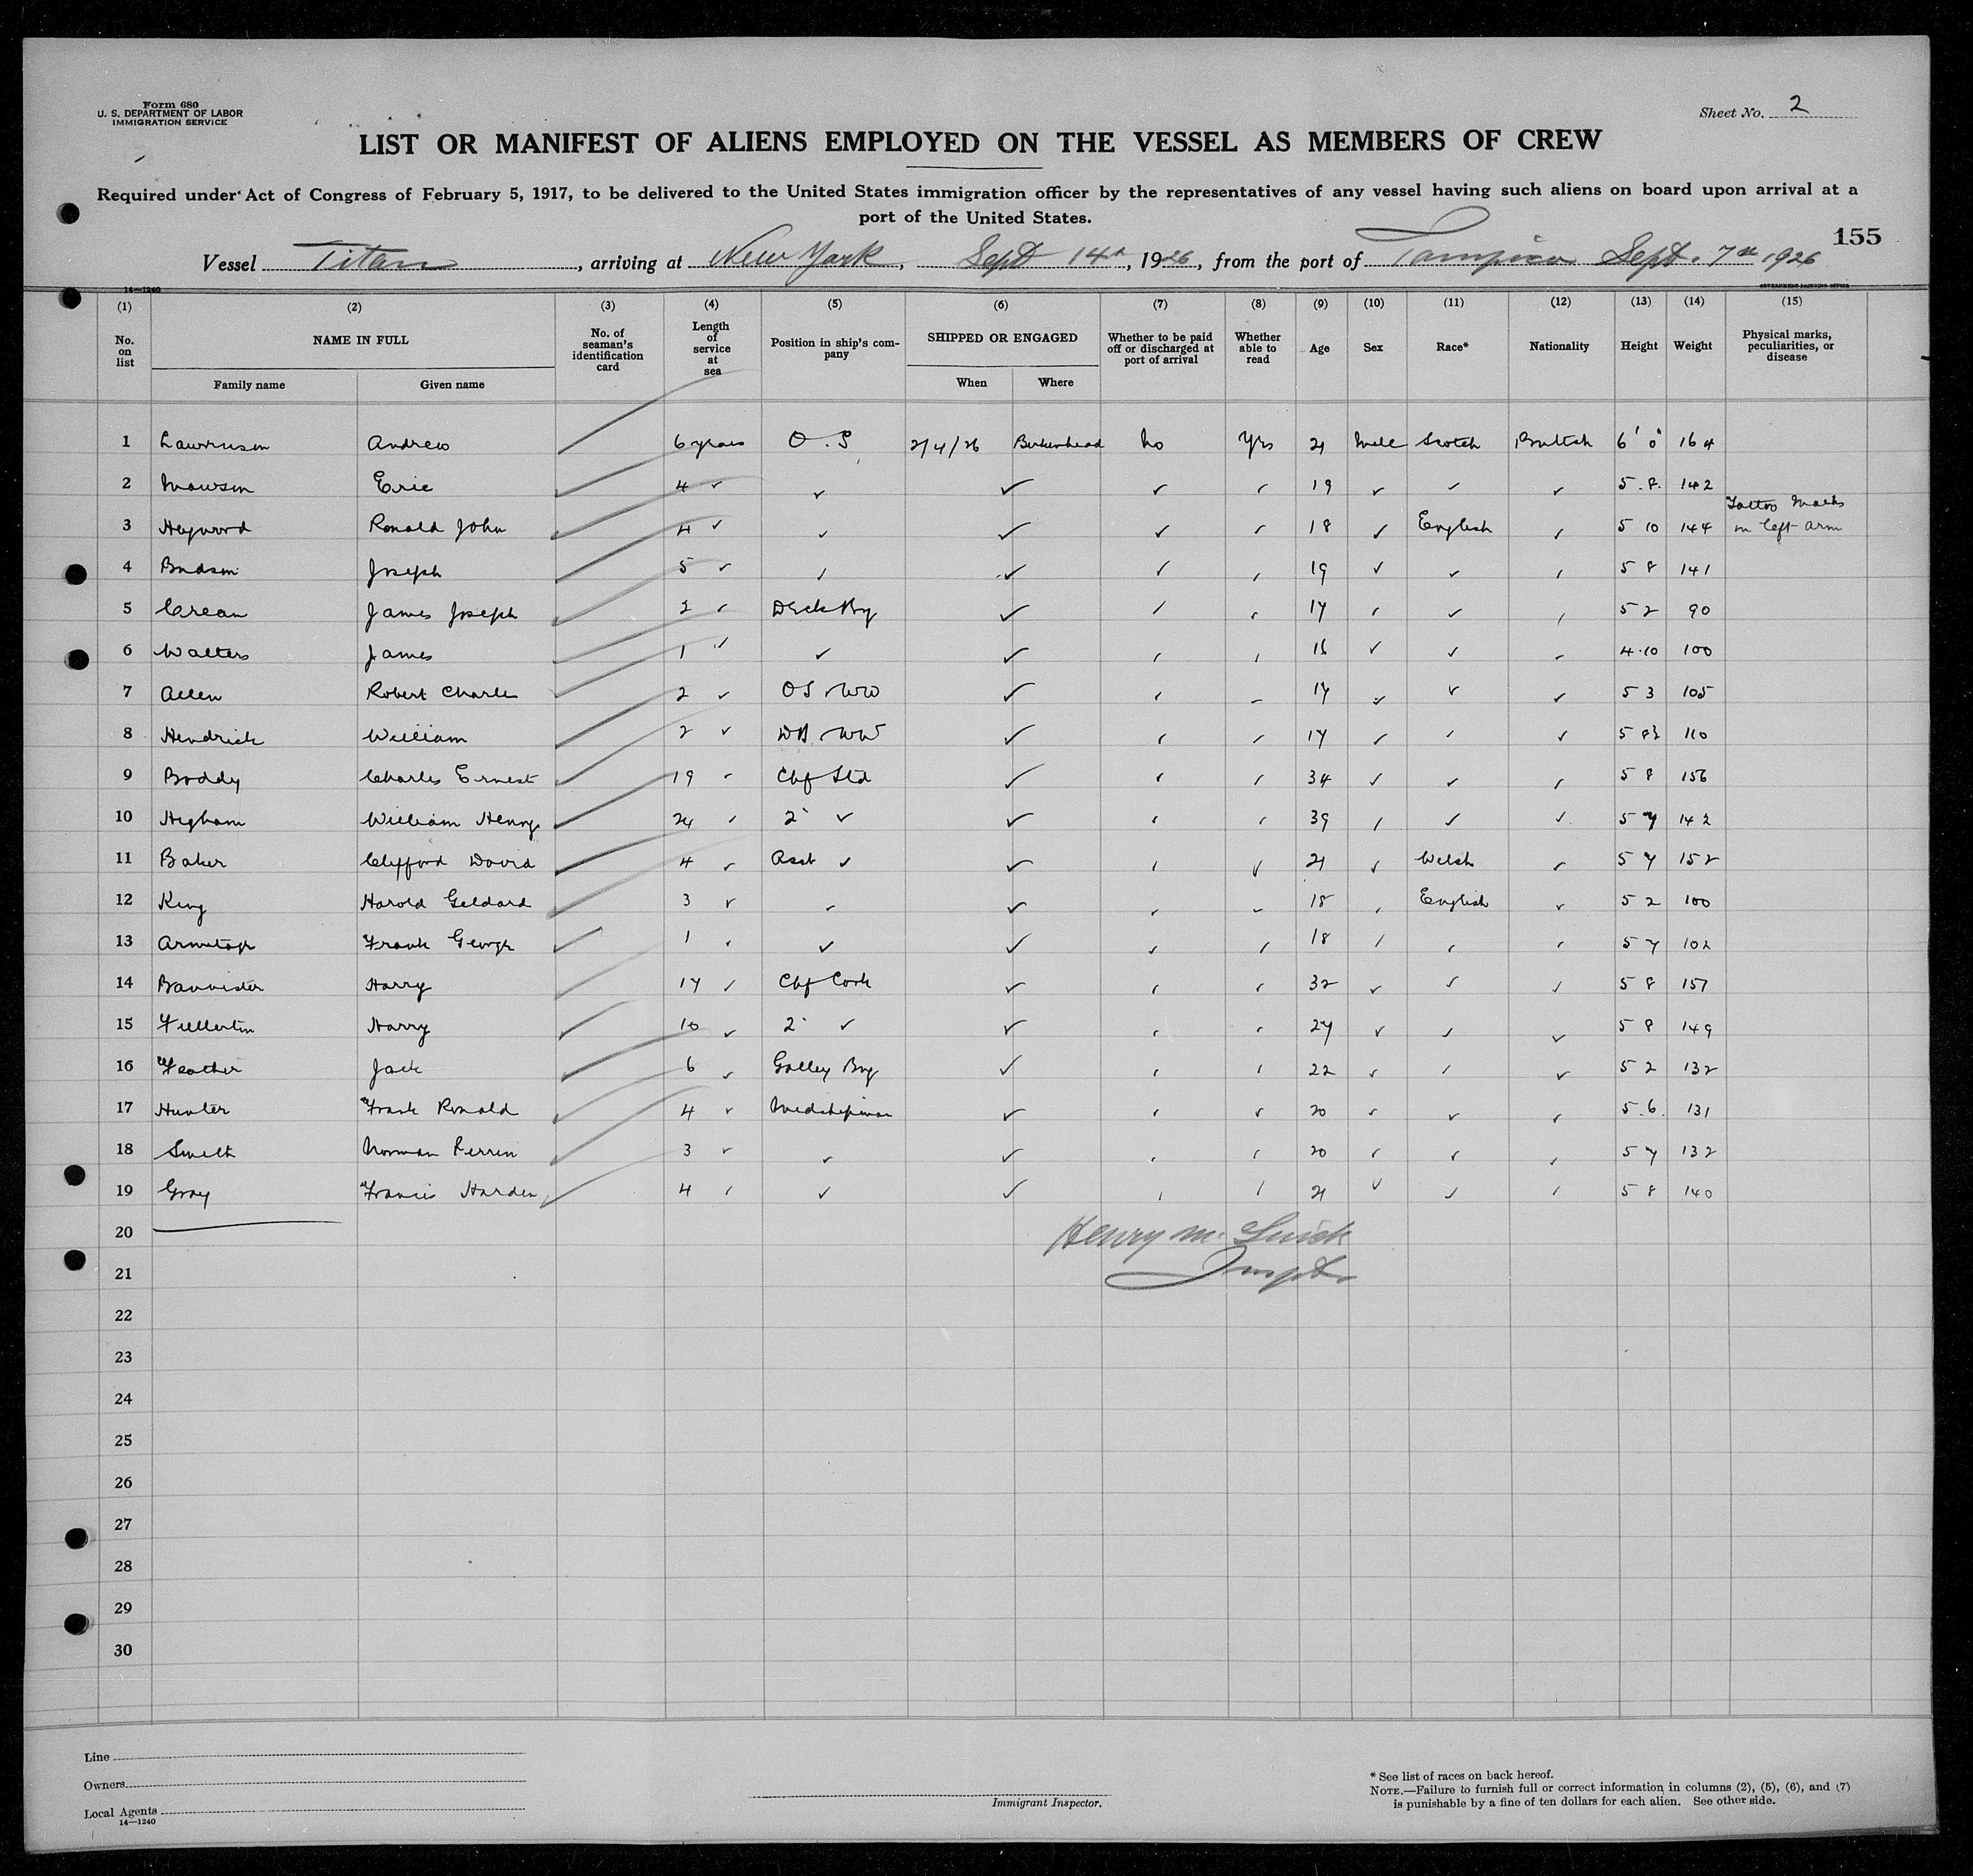 Form 680
U. S. DEPARTMENT OF LABOR
IMMIGRATION SERVICE
Sheet No. 2
LIST OR MANIFEST OF ALIENS EMPLOYED ON THE VESSEL AS MEMBERS OF CREW
Required under Act of Congress of February 5, 1917, to be delivered to the United States immigration officer by the representatives of any vessel having such aliens on board upon arrival at a
port of the United States.
155
Vessel Titan, arriving at New York, Sept 14th, 1926, from the port of Tampico Sept. 7th 1926
14—1240 GOVERNMENT PRINTING OFFICE
(1) (2) (3) (4) (5) (6) (7) (8) (9) (10) (11) (12) (13) (14) (15)
No. on list NAME IN FULL Family name Given name No. of seaman's identification card Length of service at sea Position in ship's company SHIPPED OR ENGAGED When Where Whether to be paid off or discharged at port of arrival Whether able to read Age Sex Race* Nationality Height Weight Physical marks, peculiarities, or disease
1 Andrew 6 years O.S 2/4/26 Birkenhead No Yes 21 Male Scotch British 6' 0" 164
2 Mawson Eric 4 ✓ ✓ ✓ ✓ ✓ 19 ✓ ✓ ✓ 5.8. 142
3 Heywood Ronald John 4 ✓ ✓ ✓ ✓ ✓ 18 ✓ English ✓ 5 10 144 Tattoo Marks on left arm
4 Joseph 5 ✓ ✓ ✓ ✓ ✓ 19 ✓ ✓ ✓ 5 8 141
5 Crean James Joseph 2 ✓ Deck Boy ✓ ✓ ✓ 17 ✓ ✓ ✓ 5 2 90
6 Walters James 1 ✓ ✓ ✓ ✓ ✓ 16 ✓ ✓ ✓ 4.10 100
7 Allen Robert Charles 2 ✓ OS ✓ ✓ ✓ 17 ✓ ✓ ✓ 5 3 105
8 Hendrick William 2 ✓ ✓ ✓ ✓ 17 ✓ ✓ ✓ 110
9 Boddy Charles Ernest 19 ✓ Chf Std ✓ ✓ ✓ 34 ✓ ✓ ✓ 5 8 156
10 Higham William Henry 24 ✓ 2 ✓ ✓ ✓ ✓ 39 ✓ ✓ ✓ 5 7 142
11 Baker Clifford David 4 ✓ Asst ✓ ✓ ✓ ✓ 21 ✓ Welsh ✓ 5 7 152
12 King Harold Geldard 3 ✓ ✓ ✓ ✓ ✓ 18 ✓ English ✓ 5 2 100
13 Armitage Frank George 1 ✓ ✓ ✓ ✓ ✓ 18 ✓ ✓ ✓ 5 7 102
14 Bannister Harry 17 ✓ Chf Cook ✓ ✓ ✓ 32 ✓ ✓ ✓ 5 8 157
15 Fullerton Harry 10 ✓ 2 ✓ ✓ ✓ ✓ 27 ✓ ✓ ✓ 5 8 149
16 Feather Jack 6 ✓ Galley Boy ✓ ✓ ✓ 22 ✓ ✓ ✓ 5 2 132
17 Hunter Frank Ronald 4 ✓ Midshipman ✓ ✓ ✓ 20 ✓ ✓ ✓ 5.6. 131
18 Smith Norman Perrin 3 ✓ ✓ ✓ ✓ ✓ 20 ✓ ✓ ✓ 5 7 132
19 Gray Francis Harden 4 ✓ ✓ ✓ ✓ ✓ 21 ✓ ✓ ✓ 5 8 140
20 Henry M.
21 Inspt.
22
23
24
25
26
27
28
29
30
Line
Owners
Local Agents
14—1240
Immigrant Inspector.
* See list of races on back hereof.
NOTE.—Failure to furnish full or correct information in columns (2), (5), (6), and (7)
is punishable by a fine of ten dollars for each alien. See other side.